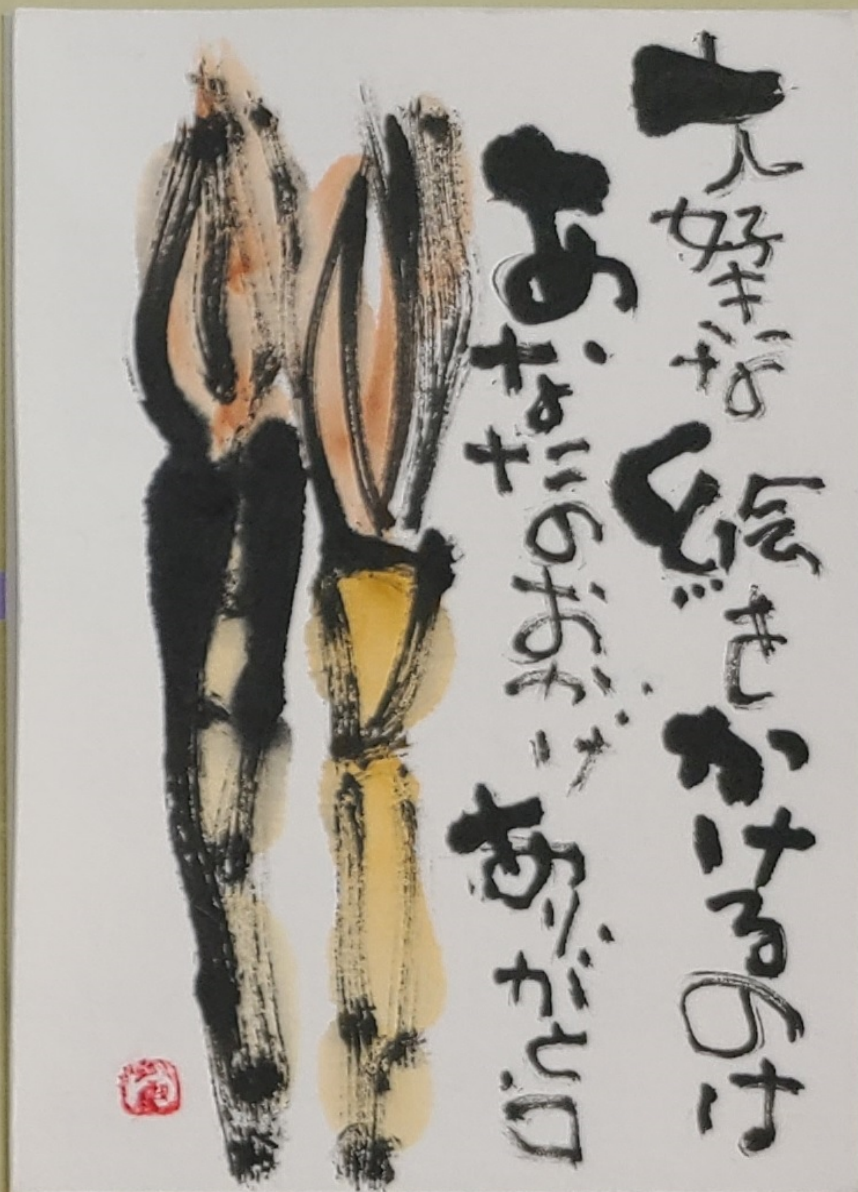 大好きな絵をかけるのは
あなたのおかげ ありがと